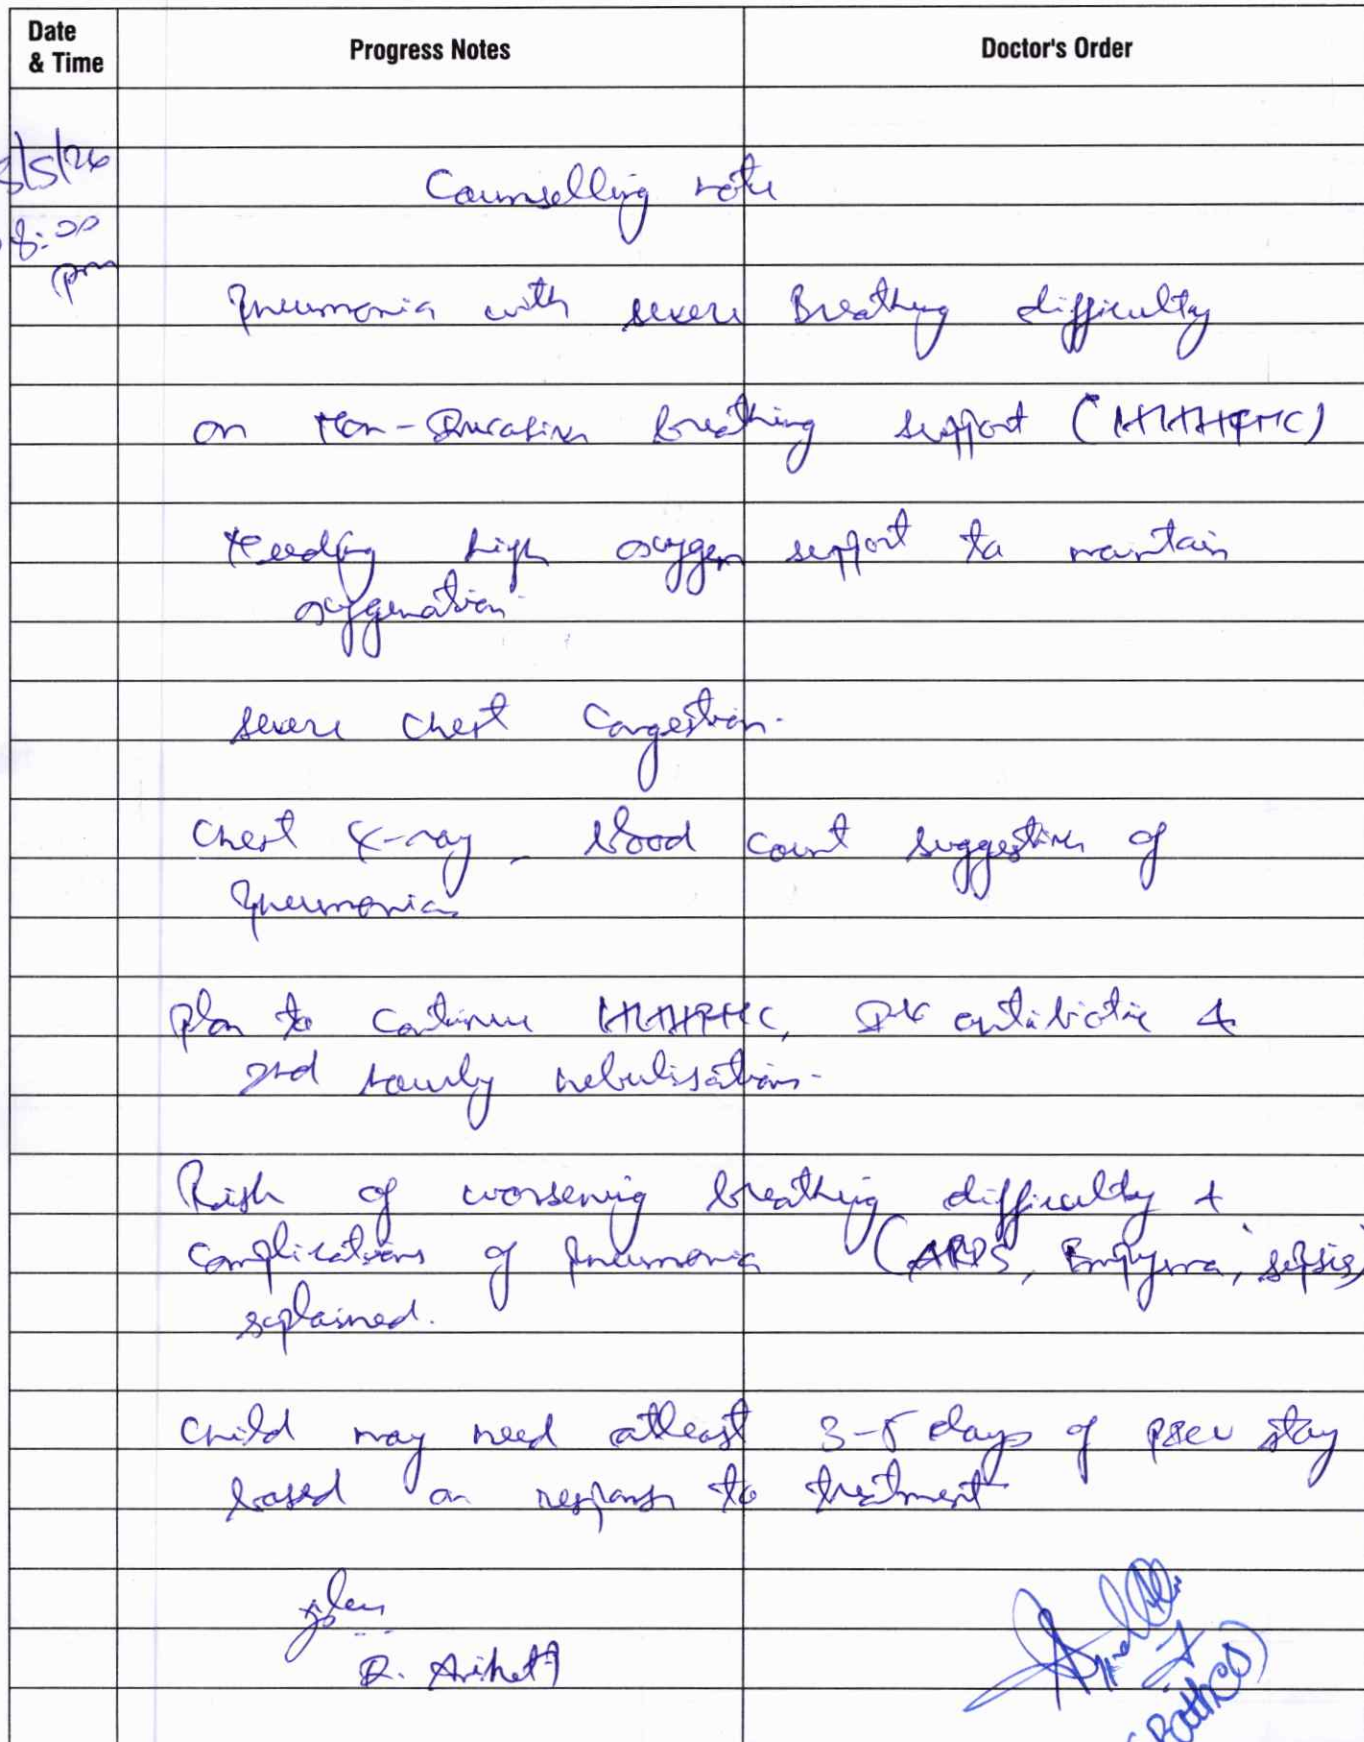 Date
& Time
Progress Notes
Doctor's Order
/5/26
8:00
pm
Counselling note
Pneumonia with severe Breathing difficulty
on Non-Invasive breathing support (HHHFNC)
Needing high oxygen support to maintain
oxygenation.
severe chest Congestion.
Chest X-ray blood count suggestive of
Pneumonia
plan to continue HHHFNC, IV antibiotic &
2nd hourly nebulisation.
Risk of worsening breathing difficulty &
complications of pneumonia (ARDS, Empyema, sepsis)
explained.
Child may need atleast 3-5 days of PICU stay
based on response to treatment